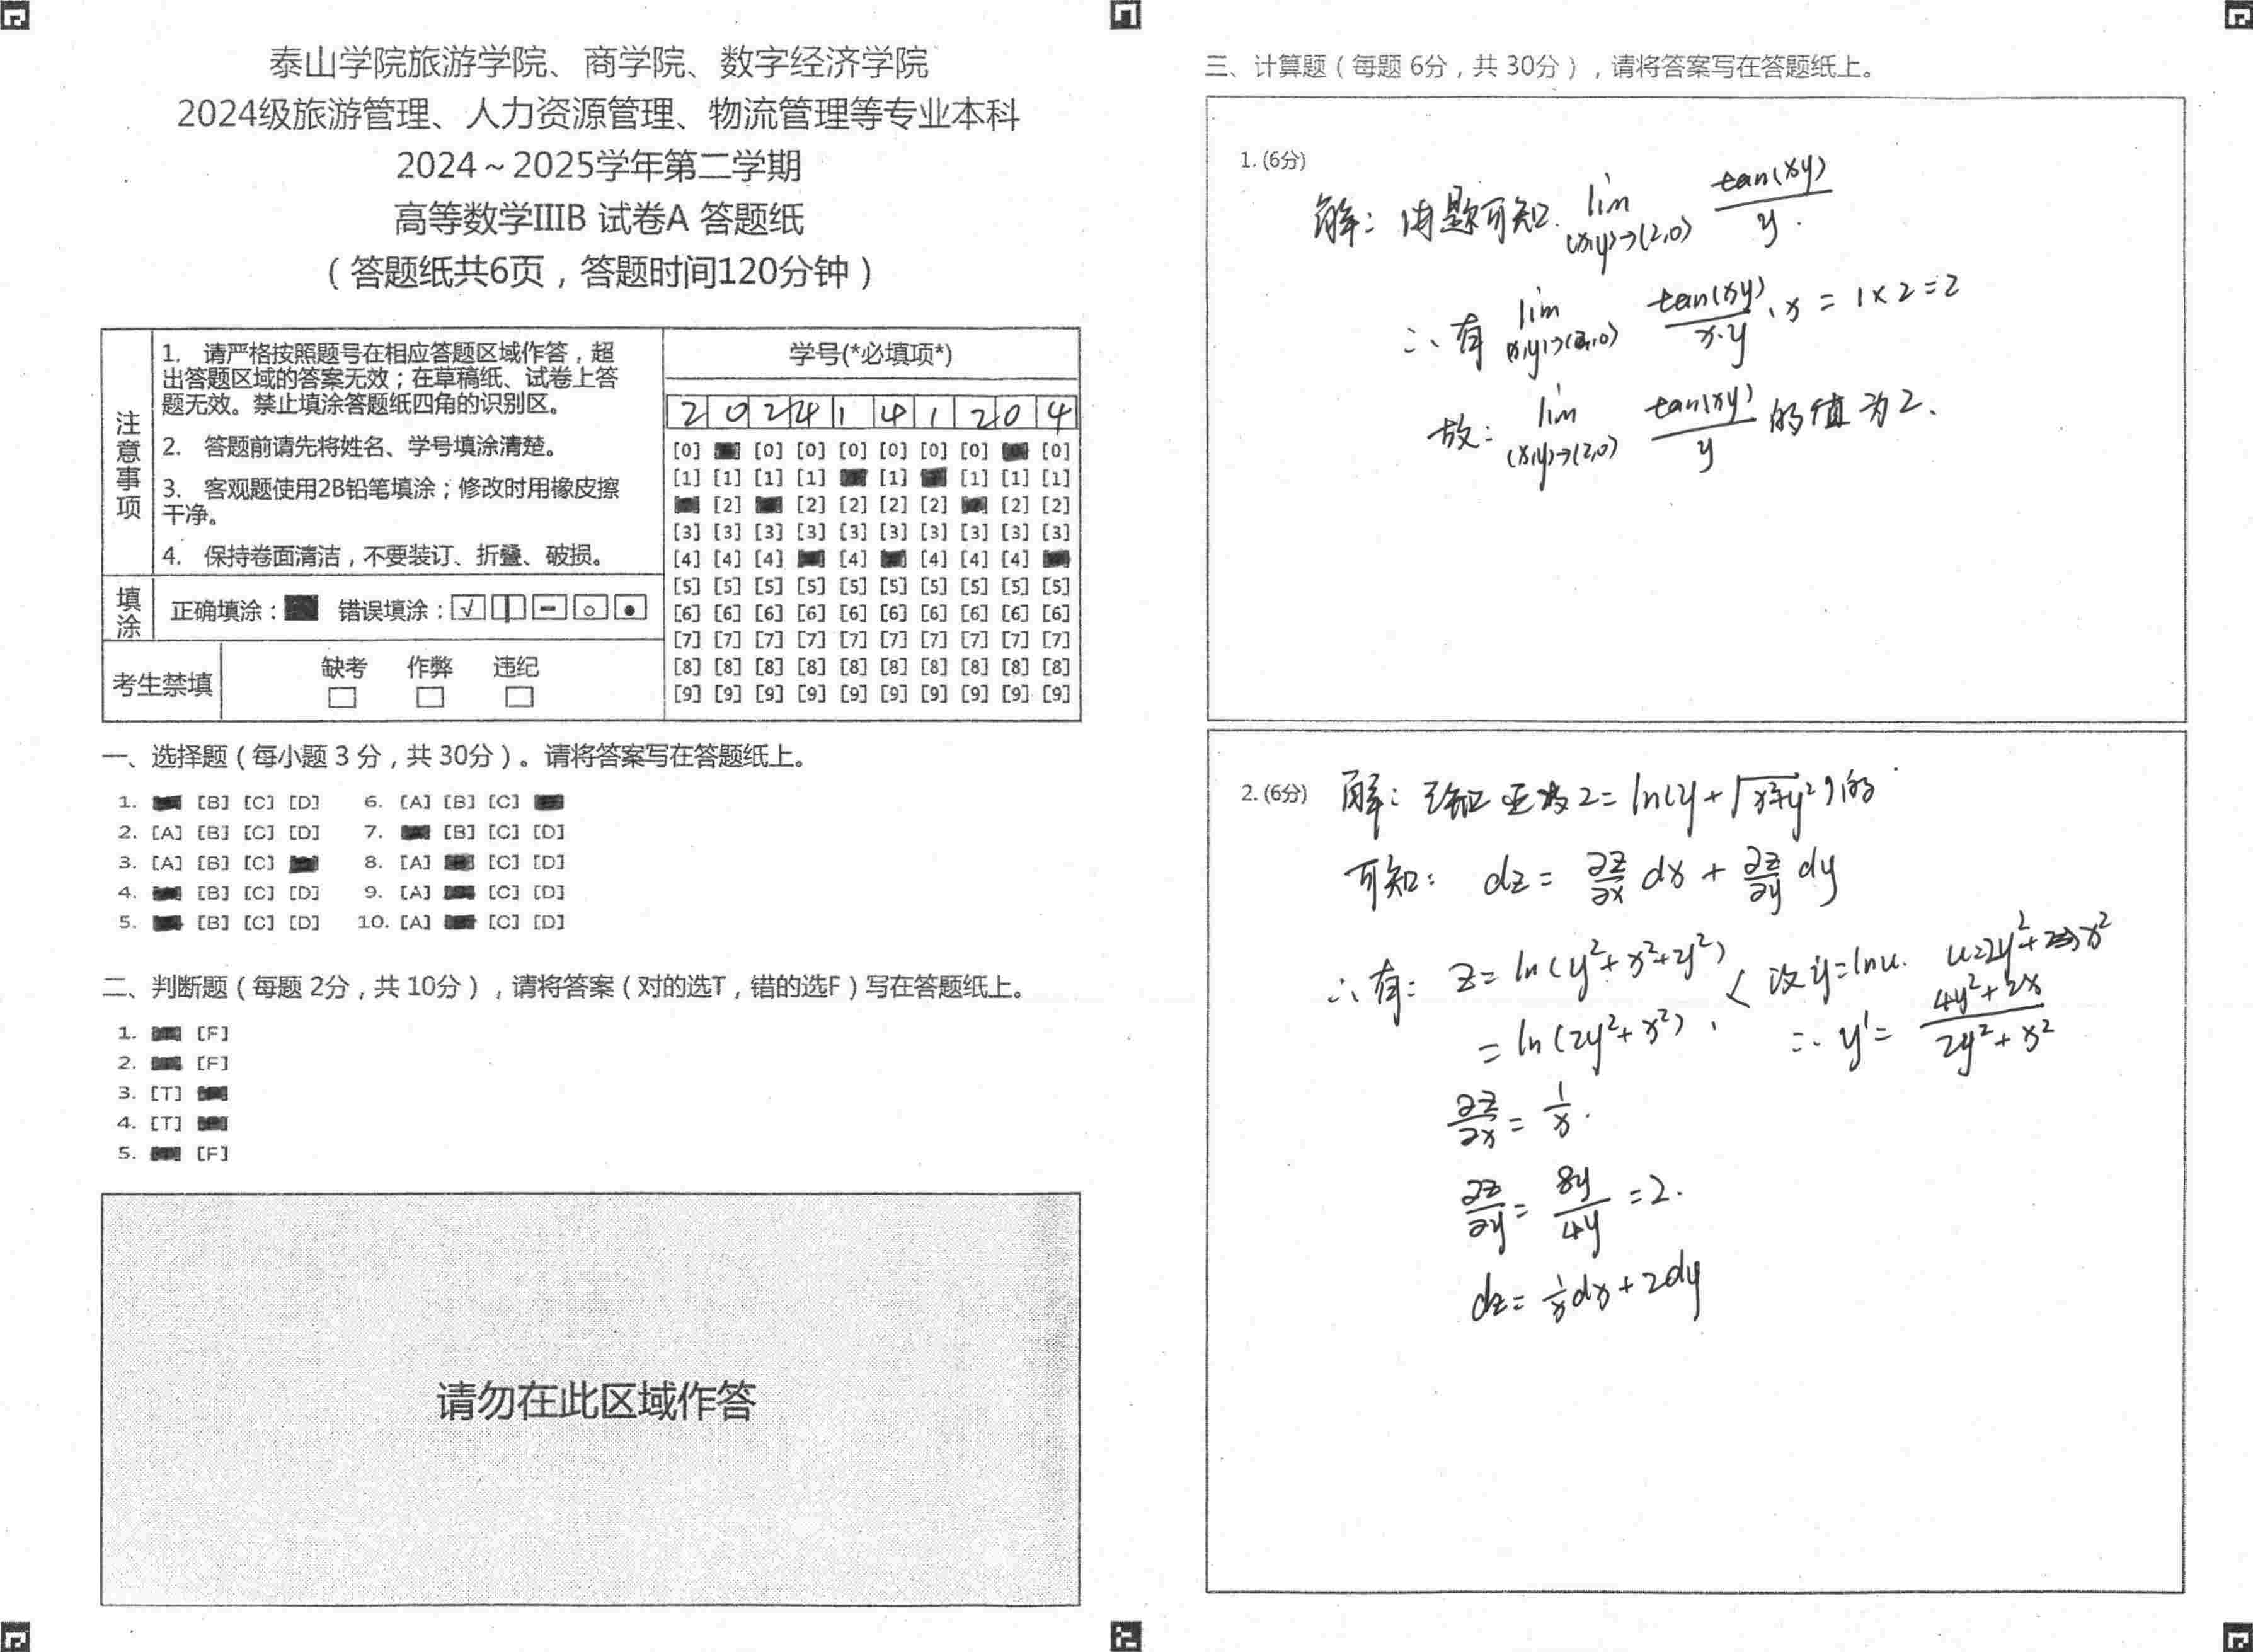 泰山学院旅游学院、商学院、数字经济学院
2024级旅游管理、人力资源管理、物流管理等专业本科
2024~2025学年第二学期
高等数学IIIB 试卷A 答题纸
（答题纸共6页，答题时间120分钟）
注意事项
1. 请严格按照题号在相应答题区域作答，超
出答题区域的答案无效；在草稿纸、试卷上答
题无效。禁止填涂答题纸四角的识别区。
2. 答题前请先将姓名、学号填涂清楚。
3. 客观题使用2B铅笔填涂；修改时用橡皮擦
干净。
4. 保持卷面清洁，不要装订、折叠、破损。
填涂
正确填涂：■ 错误填涂：
考生禁填
缺考 作弊 违纪
学号(*必填项*)
2 0 2 4 1 4 1 2 0 4
[0] ■ [0] [0] [0] [0] [0] [0] ■ [0]
[1] [1] [1] [1] ■ [1] ■ [1] [1] [1]
■ [2] ■ [2] [2] [2] [2] ■ [2] [2]
[3] [3] [3] [3] [3] [3] [3] [3] [3] [3]
[4] [4] [4] ■ [4] ■ [4] [4] [4] ■
[5] [5] [5] [5] [5] [5] [5] [5] [5] [5]
[6] [6] [6] [6] [6] [6] [6] [6] [6] [6]
[7] [7] [7] [7] [7] [7] [7] [7] [7] [7]
[8] [8] [8] [8] [8] [8] [8] [8] [8] [8]
[9] [9] [9] [9] [9] [9] [9] [9] [9] [9]
一、选择题（每小题 3 分，共 30分）。请将答案写在答题纸上。
1. ■ [B] [C] [D] 6. [A] [B] [C] ■
2. [A] [B] [C] [D] 7. ■ [B] [C] [D]
3. [A] [B] [C] ■ 8. [A] ■ [C] [D]
4. ■ [B] [C] [D] 9. [A] ■ [C] [D]
5. ■ [B] [C] [D] 10. [A] ■ [C] [D]
二、判断题（每题 2分，共 10分），请将答案（对的选T，错的选F）写在答题纸上。
1. ■ [F]
2. ■ [F]
3. [T] ■
4. [T] ■
5. ■ [F]
请勿在此区域作答
三、计算题（每题 6分，共 30分），请将答案写在答题纸上。
1. (6分)
解：由题可知. lim (x,y)→(2,0) tan(xy)/y.
∴有 lim (x,y)→(2,0) tan(xy)/x·y · x = 1×2=2
故： lim (x,y)→(2,0) tan(xy)/y 的值为2.
2. (6分)
解： z = ln(y+√x²+y²)的
可知： dz = ∂z/∂x dx + ∂z/∂y dy
∴有： z = ln(y²+x²+y²)
= ln(2y²+x²).
设y=lnu. u=2y²+x²
∴ y' = 4y²+2x/2y²+x²
∂z/∂x = 1/x.
∂z/∂y = 8y/4y = 2.
dz = 1/x dx + 2dy